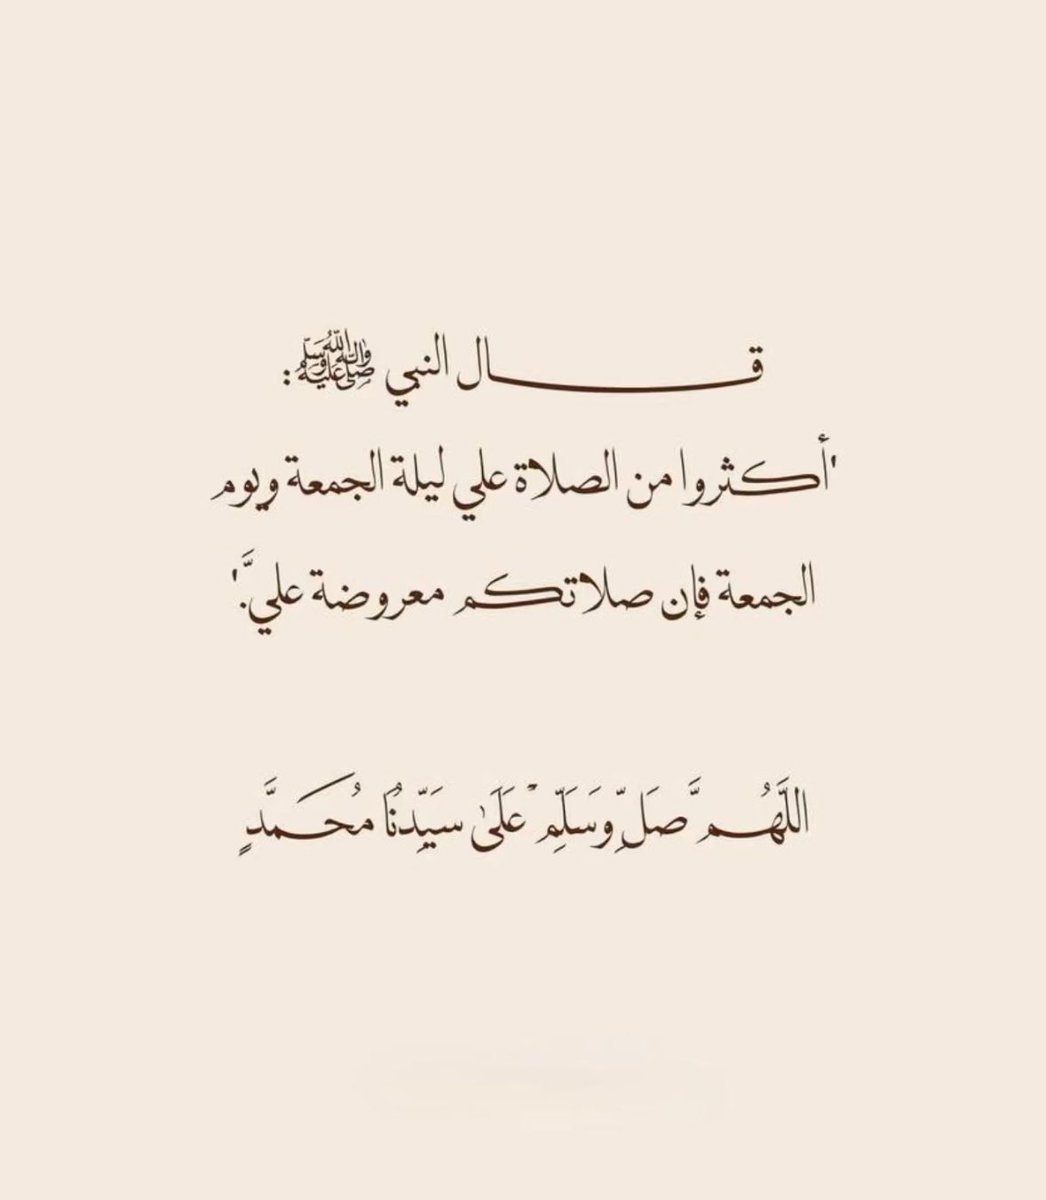 قـــال النبي ﷺ :
'أكثروا من الصلاة علي ليلة الجمعة ويوم
الجمعة فإن صلاتكم معروضة عليَّ.'
اللَّهُـــم َّصَلِّ وَسَلِّم ْ عَلَىٰ سَيِّدِنَُا مُحَـــمَّدٍ